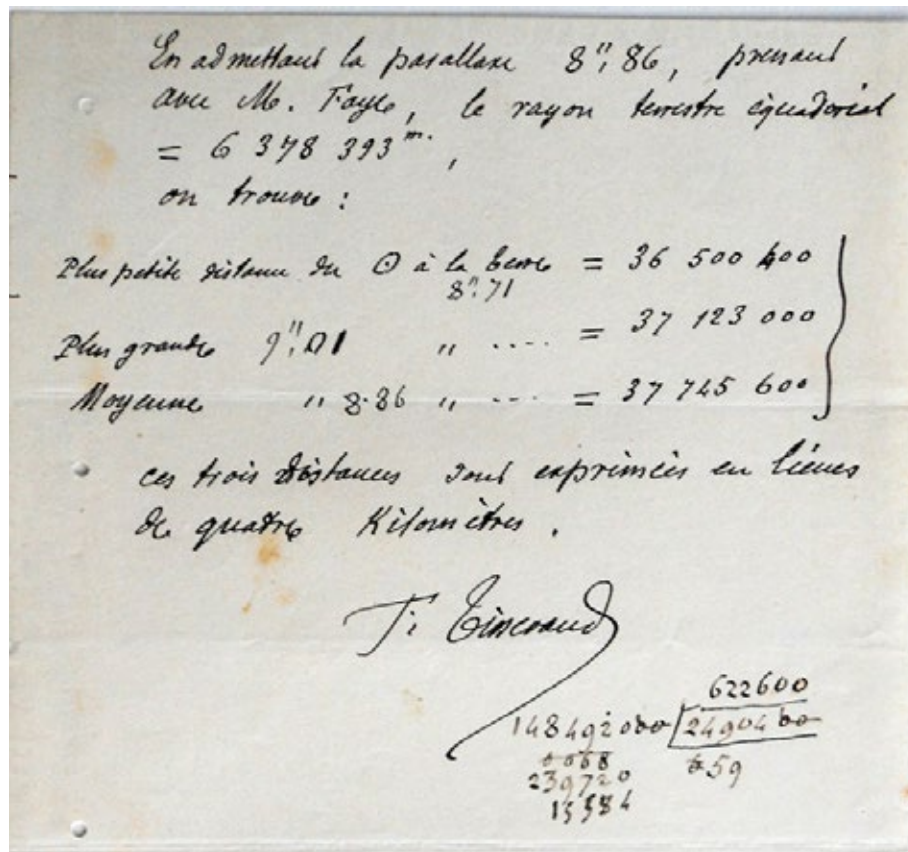 En admettant la parallaxe 8",86, prenant
avec M. Faye, le rayon terrestre équatorial
= 6 378 393 m.,
on trouve :
Plus petite distance du ☉ à la terre = 36 500 400
8".71
Plus grande 9",01 " .... = 37 123 000
Moyenne " 8.86 " ... = 37 745 600
ces trois distances sont exprimées en lieues
de quatre Kilomètres.
F. Tisserand
622600
148492000 2490400
0068 59
239720
15584